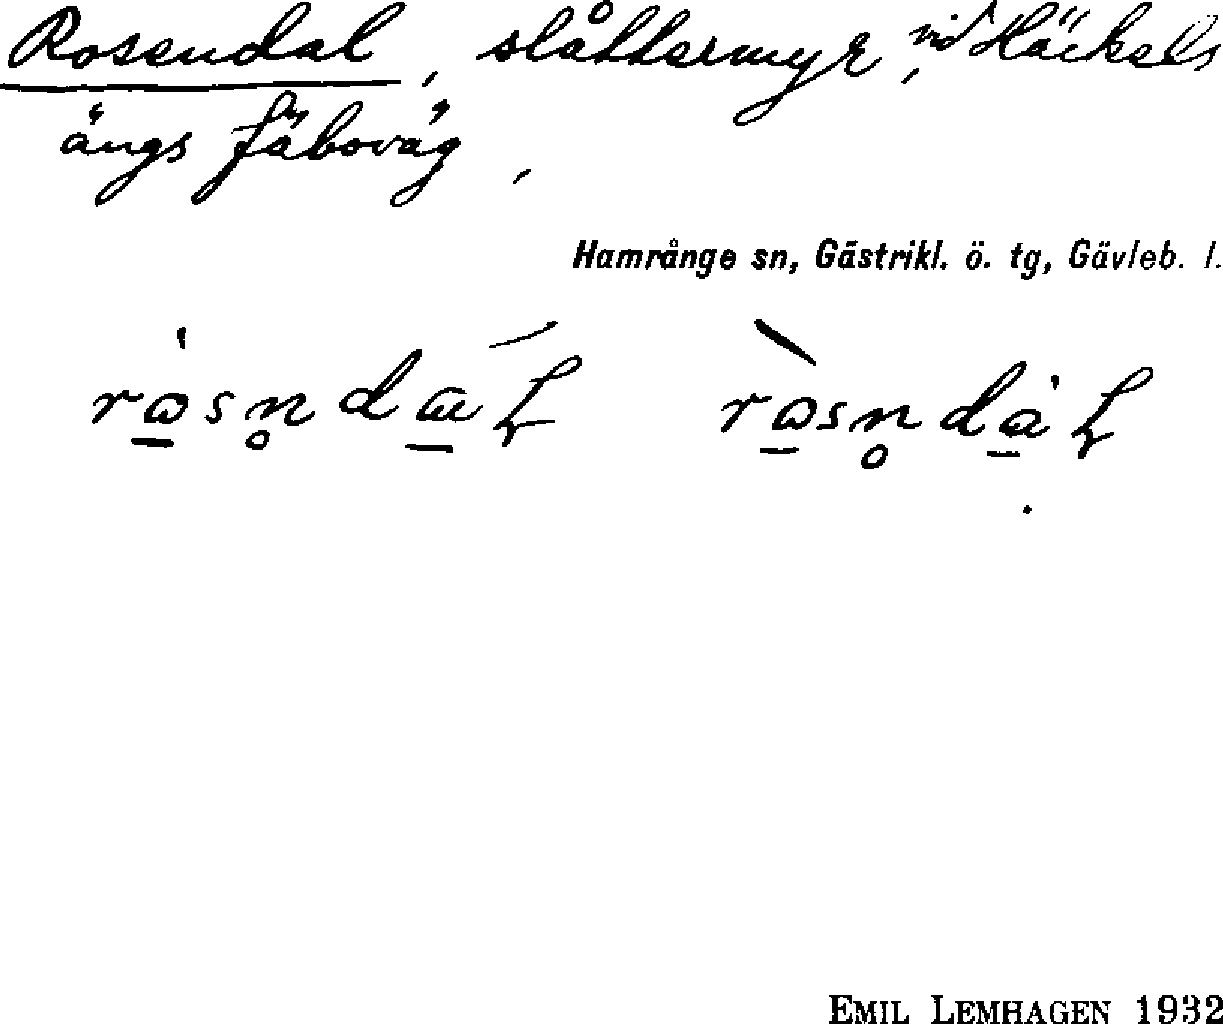 Rosendal, slåttermyr, vid Häcksels
ängs fäboväg,
Hamrånge sn, Gästrikl. ö. tg, Gävleb. l.
EMIL LEMHAGEN 1932